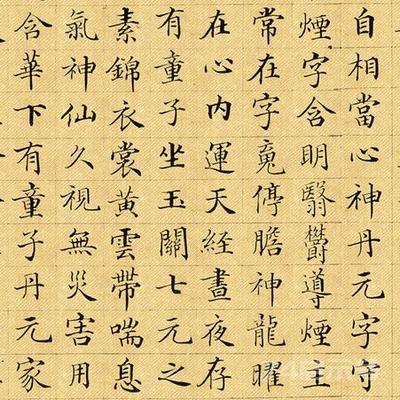 自相當心神丹元字守
煙字含明翳鬱導煙主
常在字䰟停膽神龍曜
在心内運天経晝夜存
有童子坐玉關七元之
素錦衣裳黄雲帶喘息
氣神仙久視無災害用
含華下有童子丹元家